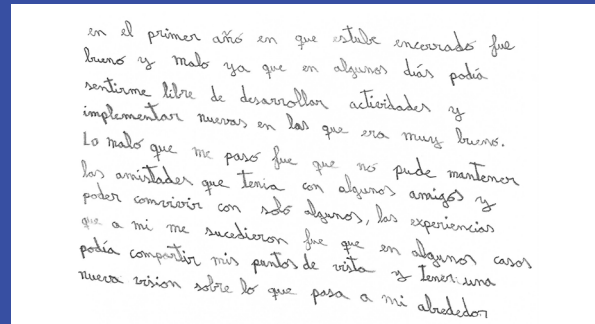 en el primer año en que estube encerrado fue
bueno y malo ya que en algunos diás podía
sentirme libre de desarrollar actividades y
implementar nuevas en las que era muy bueno.
Lo malo que me pasó fue que no pude mantener
las amistades que tenia con algunos amigos y
poder convivir con solo algunos, las experiencias
que a mi me sucedieron fue que en algunos casos
podía compartir mis puntos de vista y tener una
nueva vision sobre lo que pasa a mi alrededor